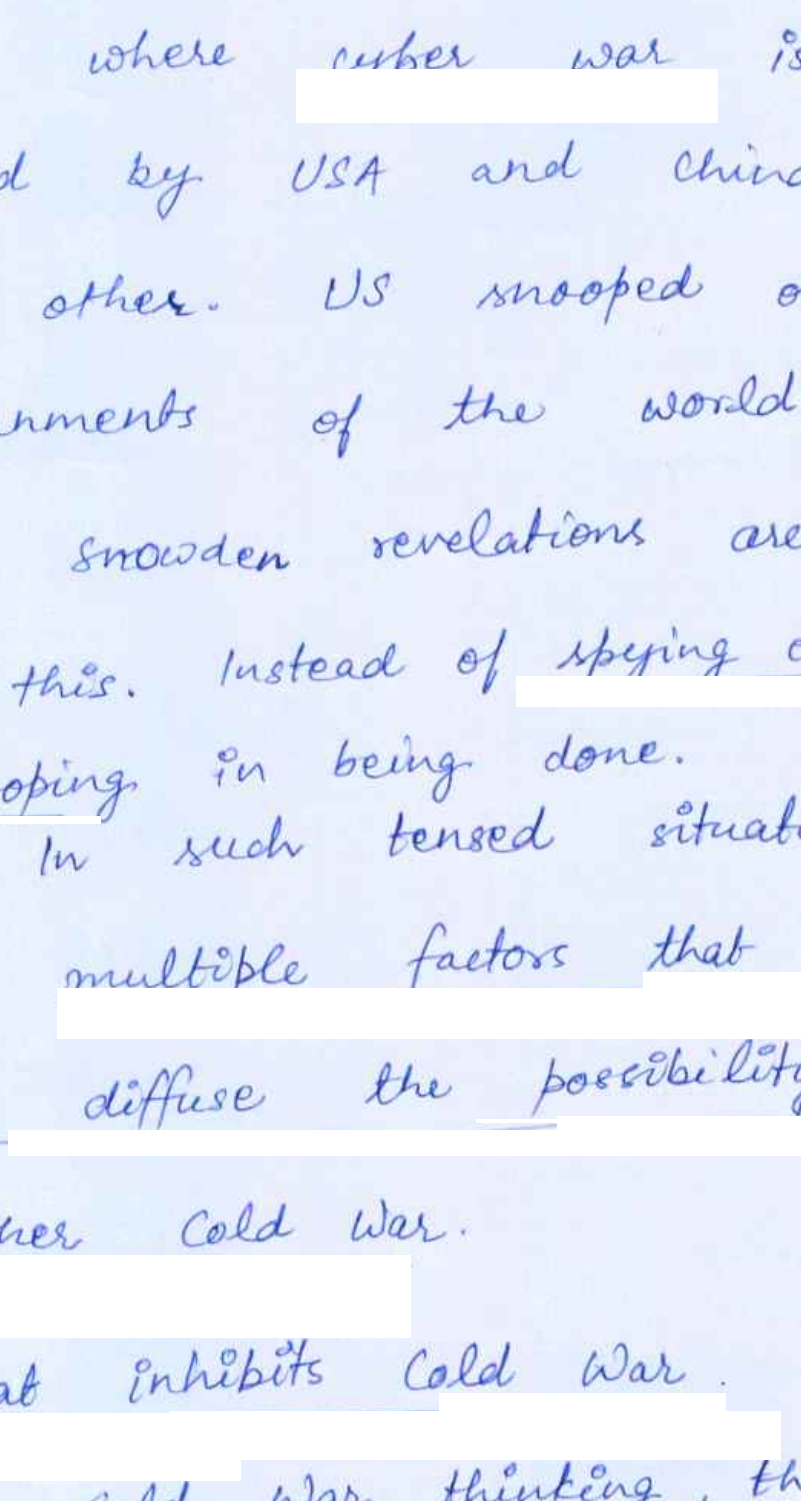 where cyber war is
d by USA and China
other. US snooped o
nments of the world
Snowden revelations are
this. Instead of spying o
oping in being done.
In such tensed situati
multiple factors that
diffuse the possibility
her Cold War.
at inhibits Cold War.
Cold War thinking, th